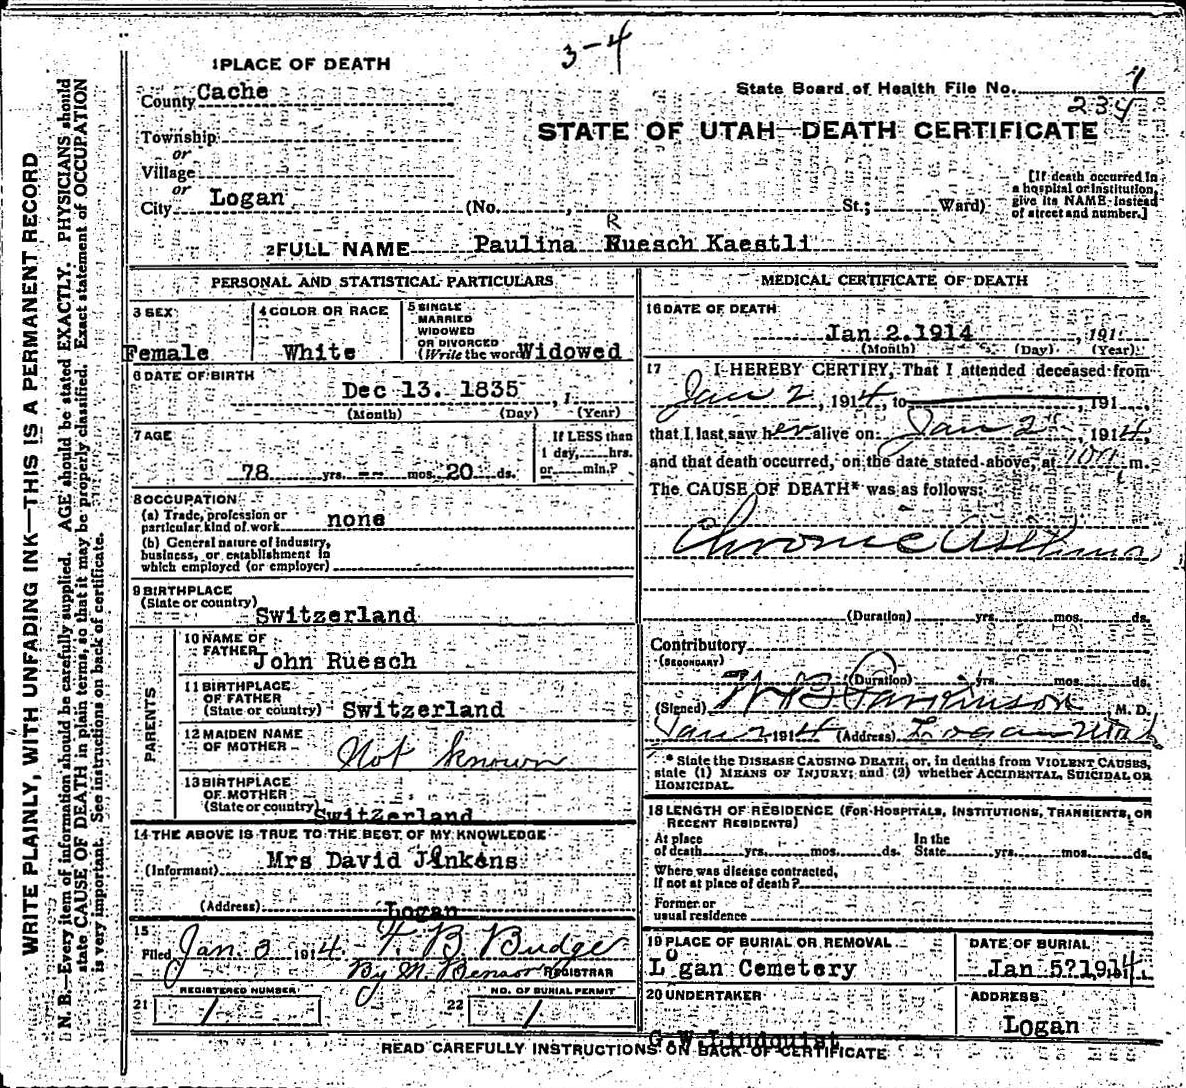 3-4
1 PLACE OF DEATH
County Cache
State Board of Health File No. 1
234
Township
or
Village
or
City Logan (No. , St.; Ward)
STATE OF UTAH—DEATH CERTIFICATE
[If death occurred in
a hospital or institution,
give its NAME instead
of street and number.]
R
2 FULL NAME Paulina Ruesch Kaestli
PERSONAL AND STATISTICAL PARTICULARS
3 SEX
Female
4 COLOR OR RACE
White
5 SINGLE
MARRIED
WIDOWED
OR DIVORCED
(Write the word) Widowed
6 DATE OF BIRTH
Dec 13. 1835 , 1
(Month) (Day) (Year)
7 AGE
78 yrs. -- mos. 20 ds.
If LESS than
1 day, hrs.
or min.?
8 OCCUPATION
(a) Trade, profession or
particular kind of work none
(b) General nature of industry,
business, or establishment in
which employed (or employer)
9 BIRTHPLACE
(State or country) Switzerland
PARENTS
10 NAME OF
FATHER John Ruesch
11 BIRTHPLACE
OF FATHER
(State or country) Switzerland
12 MAIDEN NAME
OF MOTHER Not known
13 BIRTHPLACE
OF MOTHER
(State or country) Switzerland
14 THE ABOVE IS TRUE TO THE BEST OF MY KNOWLEDGE
(Informant) Mrs David Jenkens
(Address) Logan
15
Filed Jan. 3 1914. F. B Budge
By M. Benson REGISTRAR
REGISTERED NUMBER
21 1
NO. OF BURIAL PERMIT
22 1
MEDICAL CERTIFICATE OF DEATH
16 DATE OF DEATH
Jan 2.1914 , 191
(Month) (Day) (Year)
17 I HEREBY CERTIFY, That I attended deceased from
Jan 2, 1914, to , 191 ,
that I last saw her alive on Jan 2, 1914,
and that death occurred, on the date stated above, at m.
The CAUSE OF DEATH* was as follows:
Chronic Asthma
(Duration) yrs. mos. ds.
Contributory
(SECONDARY)
(Duration) yrs. mos. ds.
(Signed) W B Parkinson M. D.
Jan 2, 1914 (Address) Logan Utah
* State the DISEASE CAUSING DEATH, or, in deaths from VIOLENT CAUSES,
state (1) MEANS OF INJURY; and (2) whether ACCIDENTAL, SUICIDAL OR
HOMICIDAL.
18 LENGTH OF RESIDENCE (FOR HOSPITALS, INSTITUTIONS, TRANSIENTS, OR
RECENT RESIDENTS)
At place In the
of death yrs. mos. ds. State yrs. mos. ds.
Where was disease contracted,
if not at place of death?
Former or
usual residence
19 PLACE OF BURIAL OR REMOVAL
Logan Cemetery
DATE OF BURIAL
Jan 5?1914.
20 UNDERTAKER
G.W.Lindquist
ADDRESS
Logan
READ CAREFULLY INSTRUCTIONS ON BACK OF CERTIFICATE
WRITE PLAINLY, WITH UNFADING INK—THIS IS A PERMANENT RECORD
N. B.—Every item of information should be carefully supplied. AGE should be stated EXACTLY. PHYSICIANS should
state CAUSE OF DEATH in plain terms, so that it may be properly classified. Exact statement of OCCUPATION
is very important. See instructions on back of certificate.